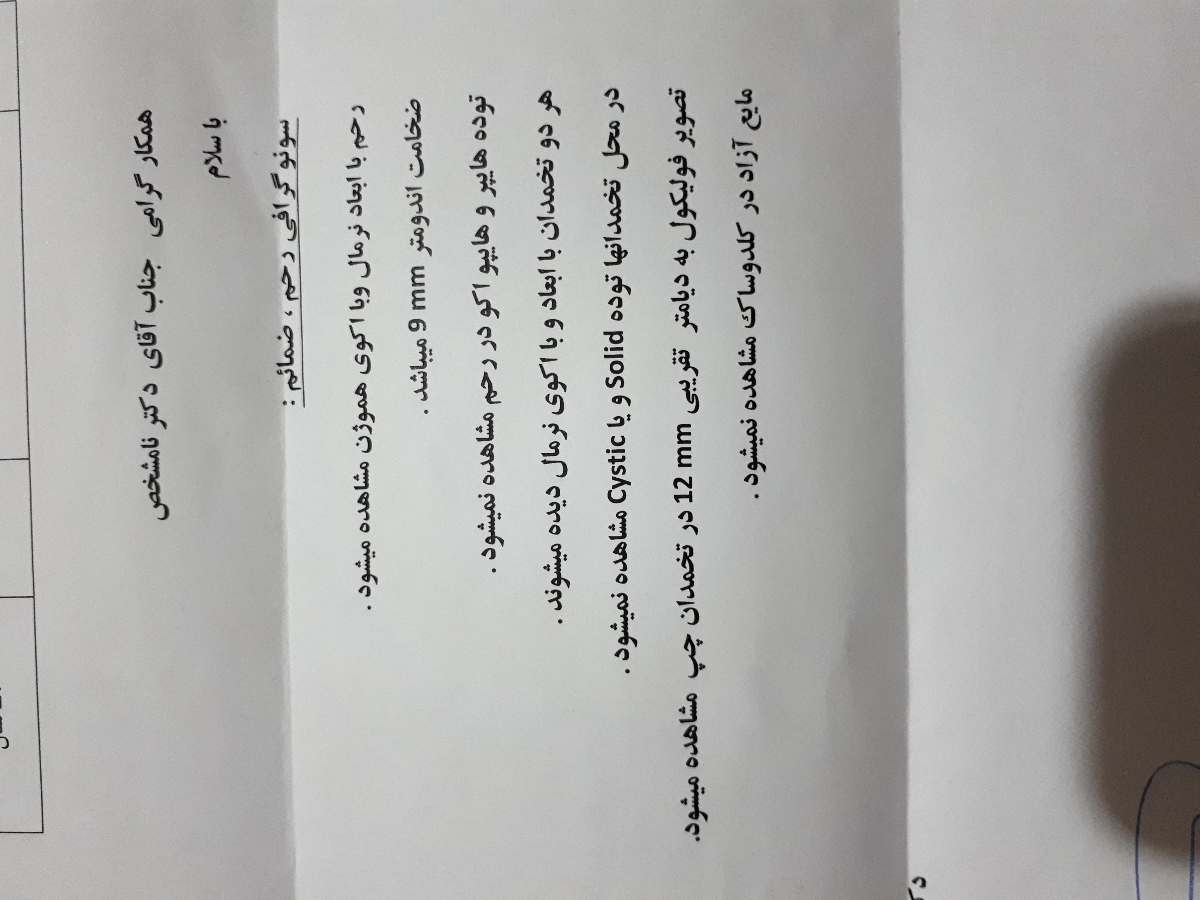 همکار گرامی جناب آقای دکتر نامشخص
با سلام
سونوگرافی رحم ، ضمائم :
رحم با ابعاد نرمال وبا اکوی هموژن مشاهده میشود .
ضخامت اندومتر 9 mm میباشد .
توده هایپر و هایپو اکو در رحم مشاهده نمیشود .
هر دو تخمدان با ابعاد و با اکوی نرمال دیده میشوند .
در محل تخمدانها توده Solid و یا Cystic مشاهده نمیشود .
تصویر فولیکول به دیامتر تقریبی 12 mm در تخمدان چپ مشاهده میشود.
مایع آزاد در کلدوساک مشاهده نمیشود .